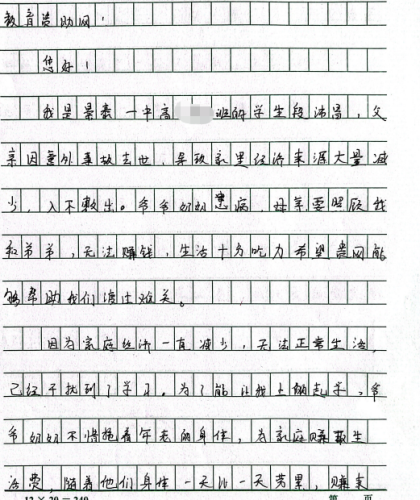 教育资助网：
您好！
我是景泰一中高 班的学生段沛喜，父
亲因意外事故去世，导致家里经济来源大量减
少，入不敷出。爷爷奶奶患病，母亲要照顾我
和弟弟，无法赚钱，生活十分吃力希望贵网能
够帮助我们渡过难关。
因为家庭经济一直减少，无法正常生活，
已经干扰到了学习。为了能让我上的起学，爷
爷奶奶不惜拖着年老的身体，为家庭赚取生
活费，随着他们身体一天比一天劳累，赚来
12×20=240 第 页